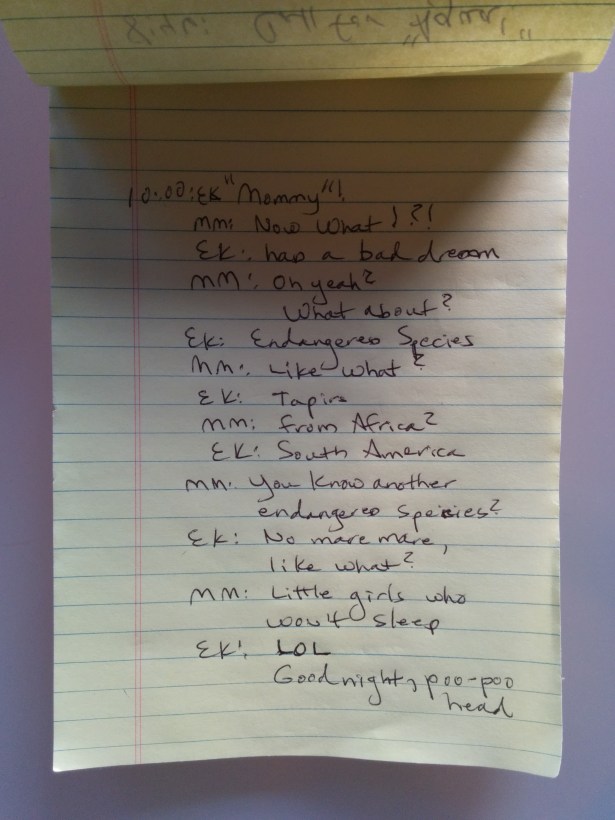 10:00: EK "Mommy"!
MM: Now What!?!
EK: had a bad dream
MM: Oh yeah?
What about?
EK: Endangered Species
MM: Like what?
EK: Tapirs
MM: from Africa?
EK: South America
MM: You know another
endangered species?
EK: No mare mare,
like what?
MM: Little girls who
won't sleep
EK: LOL
Goodnight, poo-poo
head